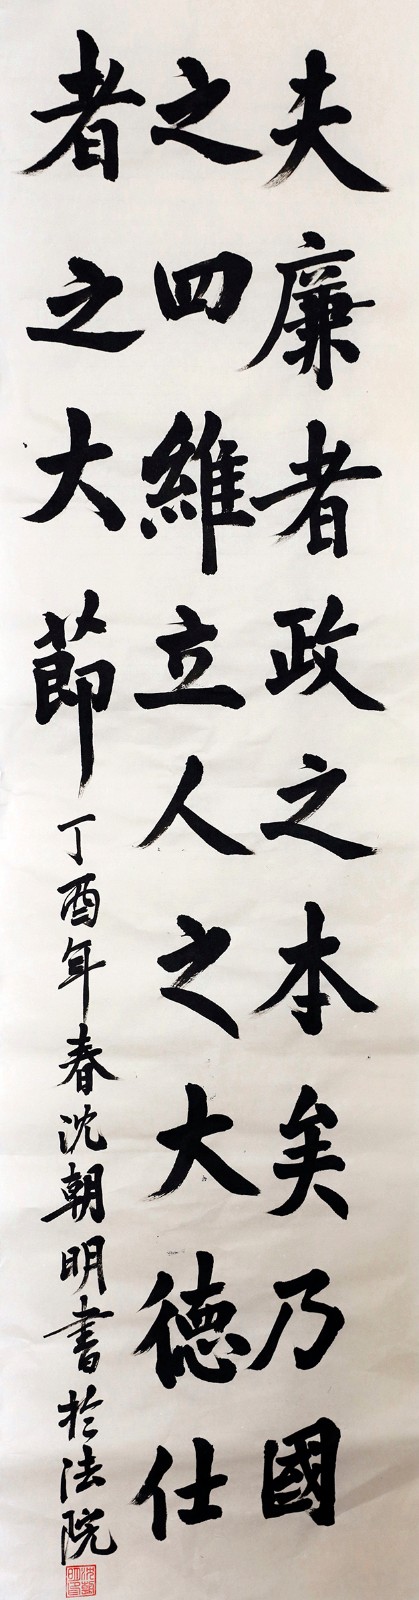 夫廉者政之本矣乃國
之四維立人之大德仕
者之大節
丁酉年春沈朝明書於法院
沈朝明印